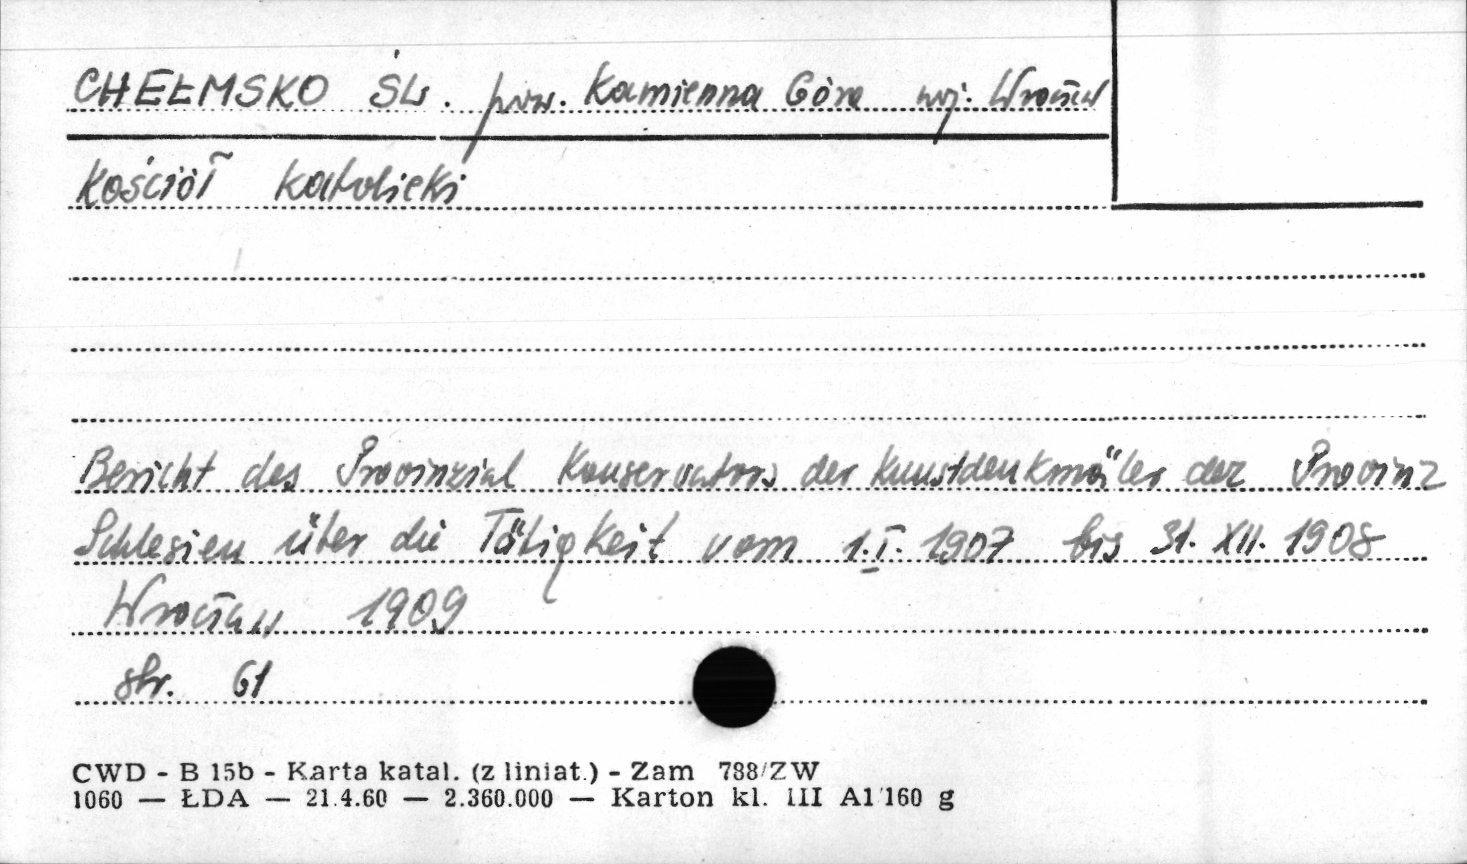 CHEŁMSKO ŚL. pow. Kamienna Góra woj. Wrocław
Kościół Katolicki
Bericht des Provinzial Konservators der Kunstdenkmäler der Provinz
Schlesien über die Tätigkeit vom 1.I. 1907 bis 31. XII. 1908
Wrocław 1909
str. 61
CWD - B 15b - Karta katal. (z liniat.) - Zam 788/ZW
1060 — ŁDA — 21.4.60 — 2.360.000 — Karton kl. III A1 160 g